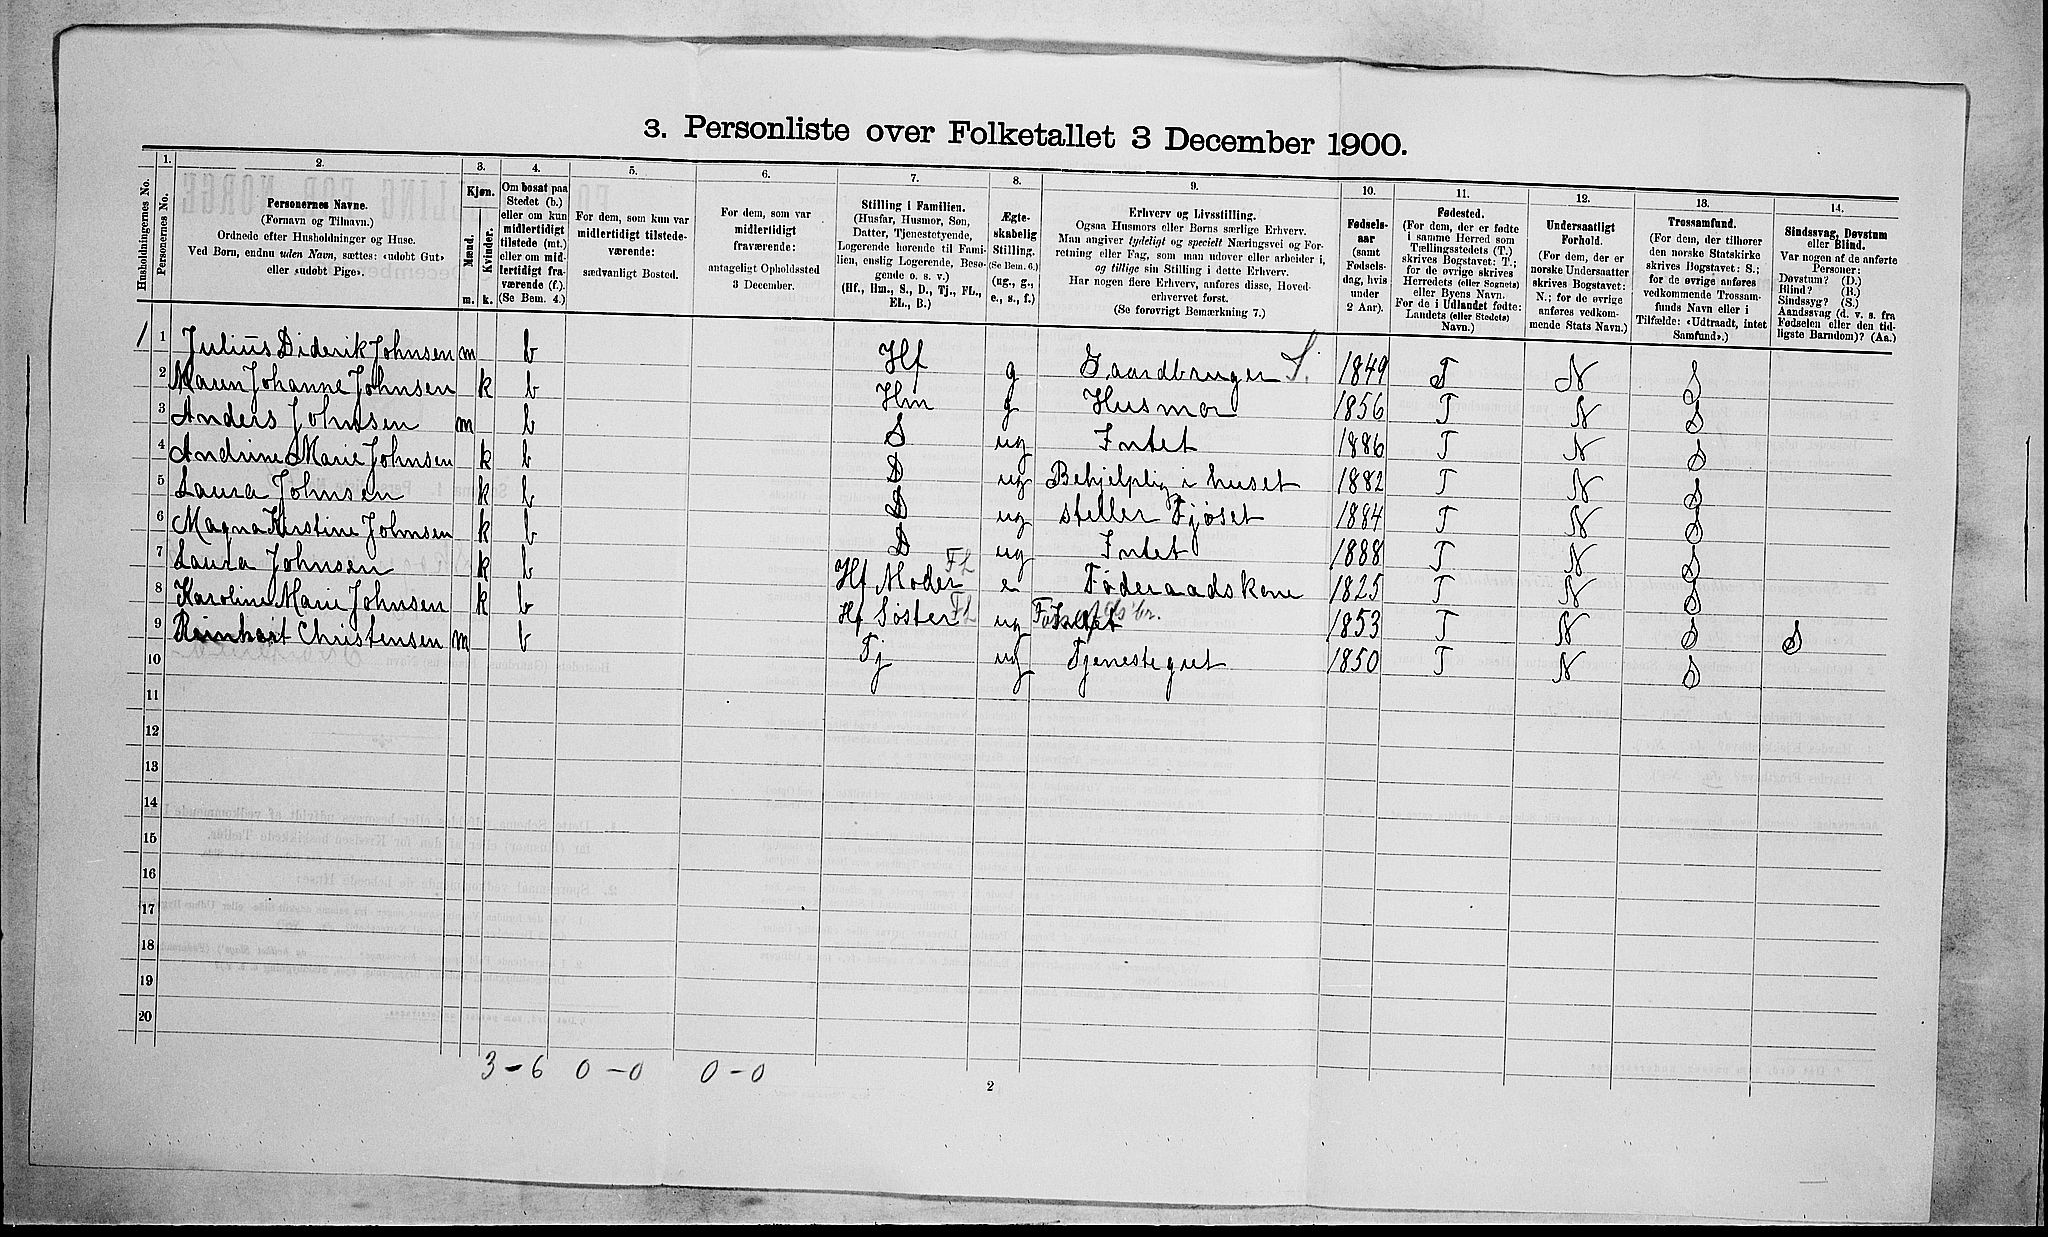 3. Personliste over Folketallet 3 December 1900.
Husholdningernes No.
1.
Personernes No.
2.
Personernes Navne.
(Fornavn og Tilnavn.)
Ordnede efter Husholdninger og Huse.
Ved Børn, endnu uden Navn, sættes: «udøbt Gut»
eller «udøbt Pige».
3.
Kjøn.
Mænd.
Kvinder.
m. k.
4.
Om bosat paa
Stedet (b.)
eller om kun
midlertidigt
tilstede (mt.)
eller om mid-
lertidigt fra-
værende (f.).
(Se Bem. 4.)
5.
For dem, som kun var
midlertidigt tilstede-
værende:
sædvanligt Bosted.
6.
For dem, som var
midlertidigt
fraværende:
antageligt Opholdssted
3 December.
7.
Stilling i Familien.
(Husfar, Husmor, Søn,
Datter, Tjenestetyende,
Logerende hørende til Fami-
lien, enslig Logerende, Besø-
gende o. s. v.)
(Hf., Hm., S., D., Tj., FL.,
EL., B.)
8.
Ægte-
skabelig
Stilling.
(Se Bem. 6.)
(ug., g.,
e., s., f.)
9.
Erhverv og Livsstilling.
Ogsaa Husmors eller Børns særlige Erhverv.
Man angiver tydeligt og specielt Næringsvei og For-
retning eller Fag, som man udøver eller arbeider i,
og tillige sin Stilling i dette Erhverv.
Har nogen flere Erhverv, anføres disse, Hoved-
erhvervet først.
(Se forøvrigt Bemærkning 7.)
10.
Fødsels-
aar
(samt
Fødsels-
dag, hvis
under
2 Aar).
11.
Fødested.
(For dem, der er fødte
i samme Herred som
Tællingsstedets (T.)
skrives Bogstavet: T.;
for de øvrige skrives
Herredets (eller Sognets)
eller Byens Navn.
For de i Udlandet fødte:
Landets (eller Stedets)
Navn.)
12.
Undersaatligt
Forhold.
(For dem, der er
norske Undersaatter
skrives Bogstavet:
N.; for de øvrige
anføres vedkom-
mende Stats Navn.)
13.
Trossamfund.
(For dem, der tilhører
den norske Statskirke
skrives Bogstavet: S.;
for de øvrige anføres
vedkommende Trossam-
funds Navn eller i
Tilfælde: «Udtraadt, intet
Samfund».)
14.
Sindssvag, Døvstum
eller Blind.
Var nogen af de anførte
Personer:
Døvstum? (D.)
Blind? (B.)
Sindssyg? (S.)
Aandssvag (d. v. s. fra
Fødselen eller den tid-
ligste Barndom)? (Aa.)
1 1 Julius Diderik Johnsen m b Hf g Gaardbruger S. 1849 T N S
2 Maren Johanne Johnsen k b Hm g Husmor 1856 T N S
3 Anders Johnsen m b S ug Intet 1886 T N S
4 Andrine Marie Johnsen k b D ug Behjelplig i huset 1882 T N S
5 Laura Johnsen k b D ug steller Fjøset 1884 T N S
6 Magna Kirstine Johnsen k b D ug Intet 1888 T N S
7 Laura Johnsen k b Hf Moder FL e Føderaadskone 1825 T N S
8 Karoline Marie Johnsen k b Hf Søster FL ug Intet 1853 T N S S
9 Reinhart Christensen m b Tj ug Tjenestegut 1850 T N S
10
11
12
13
14
15
16
17
18
19
20
3 - 6 0 - 0 0 - 0
2